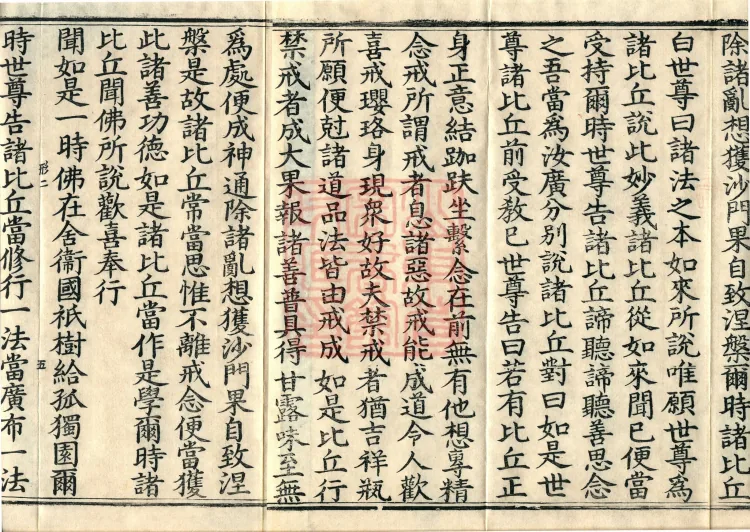 除諸亂想獲沙門果自致涅槃爾時諸比丘
白世尊曰諸法之本如來所說唯願世尊爲
諸比丘說此妙義諸比丘從如來聞已便當
受持爾時世尊告諸比丘諦聽諦聽善思念
之吾當爲汝廣分別說諸比丘對曰如是世
尊諸比丘前受教已世尊告曰若有比丘正
身正意結跏趺坐繫念在前無有他想專精
念戒所謂戒者息諸惡故戒能成道令人歡
喜戒瓔珞身現衆好故夫禁戒者猶吉祥瓶
所願便尅諸道品法皆由戒成如是比丘行
禁戒者成大果報諸善普具得甘露味至無
爲處便成神通除諸亂想獲沙門果自致涅
槃是故諸比丘常當思惟不離戒念便當獲
此諸善功德如是諸比丘當作是學爾時諸
比丘聞佛所說歡喜奉行
聞如是一時佛在舍衞國祇樹給孤獨園爾
形二 五
時世尊告諸比丘當修行一法當廣布一法